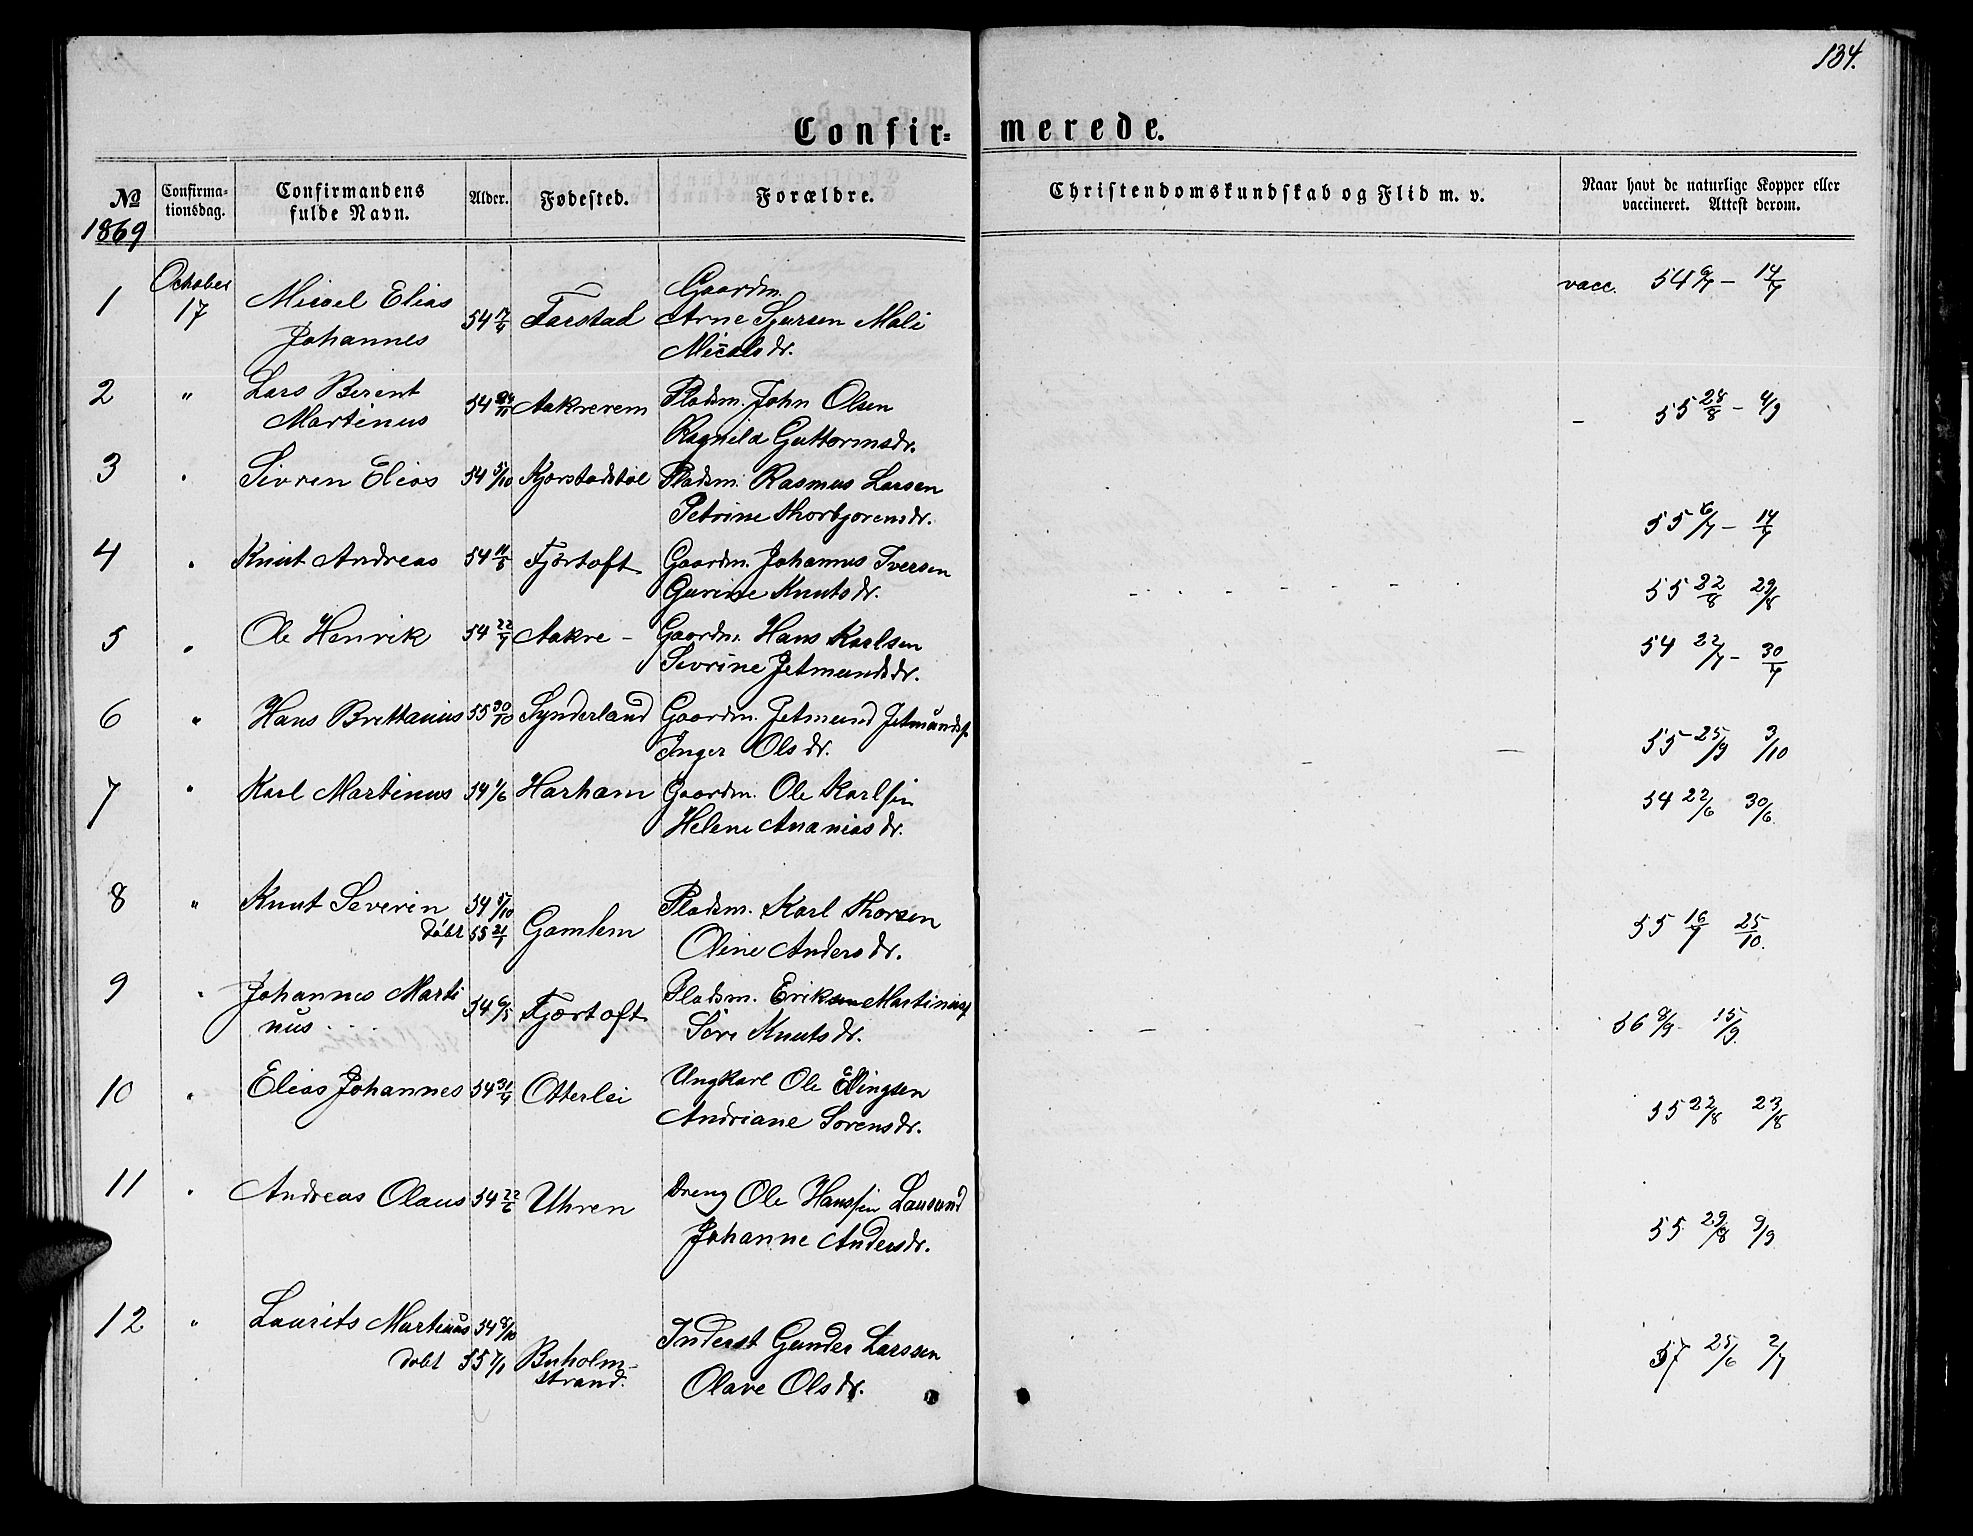 134.
Confir= merede.
No
1869
Confirma=
tionsdag.
Confirmandens
fulde Navn.
Alder.
Fødested.
Forældre.
Christendomskundskab og Flid m. v.
Naar havt de naturlige Kopper eller
vaccineret. Attest derom.
1 October 17 Micael Elias Johannes 54 Farstad Gaardm. Arne Sjursen Mali Micalsdr. vacc. 54 14/7
2 " Lars Berint Martinus 54 Aakrerem Pladsm. John Olsen Ragnild Guttormsdr. - 55 28/8 - 4/9
3 " Sivren Elias 54 5/10 Kjærstadstøl Pladsm. Rasmus Larsen Petrine Thorbjørensdr. 55 6/7 - 14/7
4 " Knut Andreas 54 11/5 Fjørtoft Gaardm. Johannes Iversen Gurine Knutsdr. 55 22/8 29/8
5 " Ole Henrik 54 22/7 Aakre - Gaardm. Hans Karlsen Sevrine Jetmundsdr. 54 22/7 - 30/7
6 " Hans Brettanus 55 30/10 Synderland Gaardm. Jetmund Jetmundsf Inger Olsdr. 55 25/9 3/10
7 " Karl Martinus 54 1/6 Harham Gaardm. Ole Karlsen Helene Ananiasdr. 54 22/6 30/6
8 " Knut Severin 54 døbt 55 21/1 Gamlem Pladsm. Karl Thorsen Oline Andersdr. 55 16/7 25/10.
9 " Johannes Marti nus 54 6/5 Fjærtoft Pladsm. Erik Martinusf Søri Knutsdr. 56 8/9 - 15/9
10 " Elias Johannes 54 Otterlei Ungkarl Ole Ellingsen Andriane Sørensdr. 55 22/8 23/8
11 " Andreas Olaus 54 22/6 Uhren Dreng Ole Hanssen Lausund Johanne Andersdr. 55 29/8 9/9
12 " Laurits Martinus 54 8/10 døbt 55 7/1 Buholm- strand. Inderst Gunder Larssen Olave Olsdr. 57 25/6 2/7